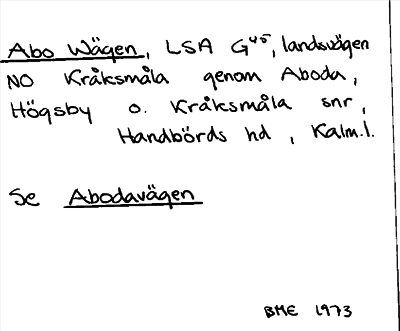 Abo Wägen, LSA G45, landsvägen
NO Kråksmåla genom Aboda,
Högsby o. Kråksmåla snr,
Handbörds hd, Kalm.l.
Se Abodavägen
BME 1973